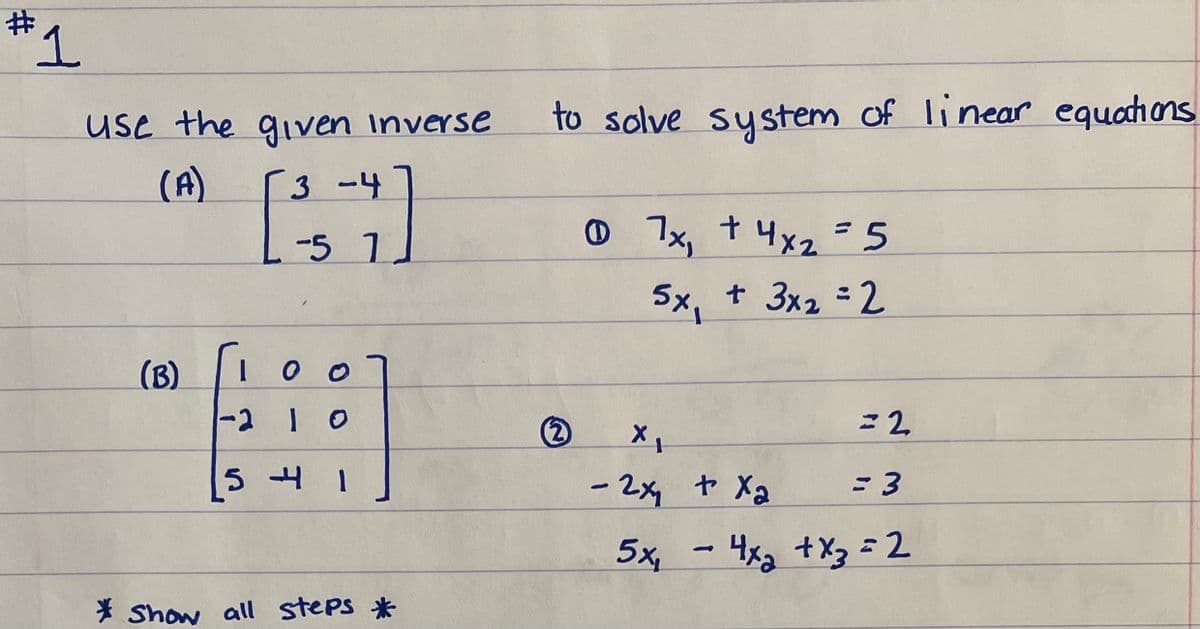 #1
use the given inverse to solve system of linear equations
(A) [ 3 -4
-5 7 ]
① 7x₁ + 4x₂ = 5
5x₁ + 3x₂ = 2
(B) [ 1 0 0
-2 1 0
5 -4 1 ]
② x₁ = 2
- 2x₁ + x₂ = 3
5x₁ - 4x₂ + x₃ = 2
* Show all steps *